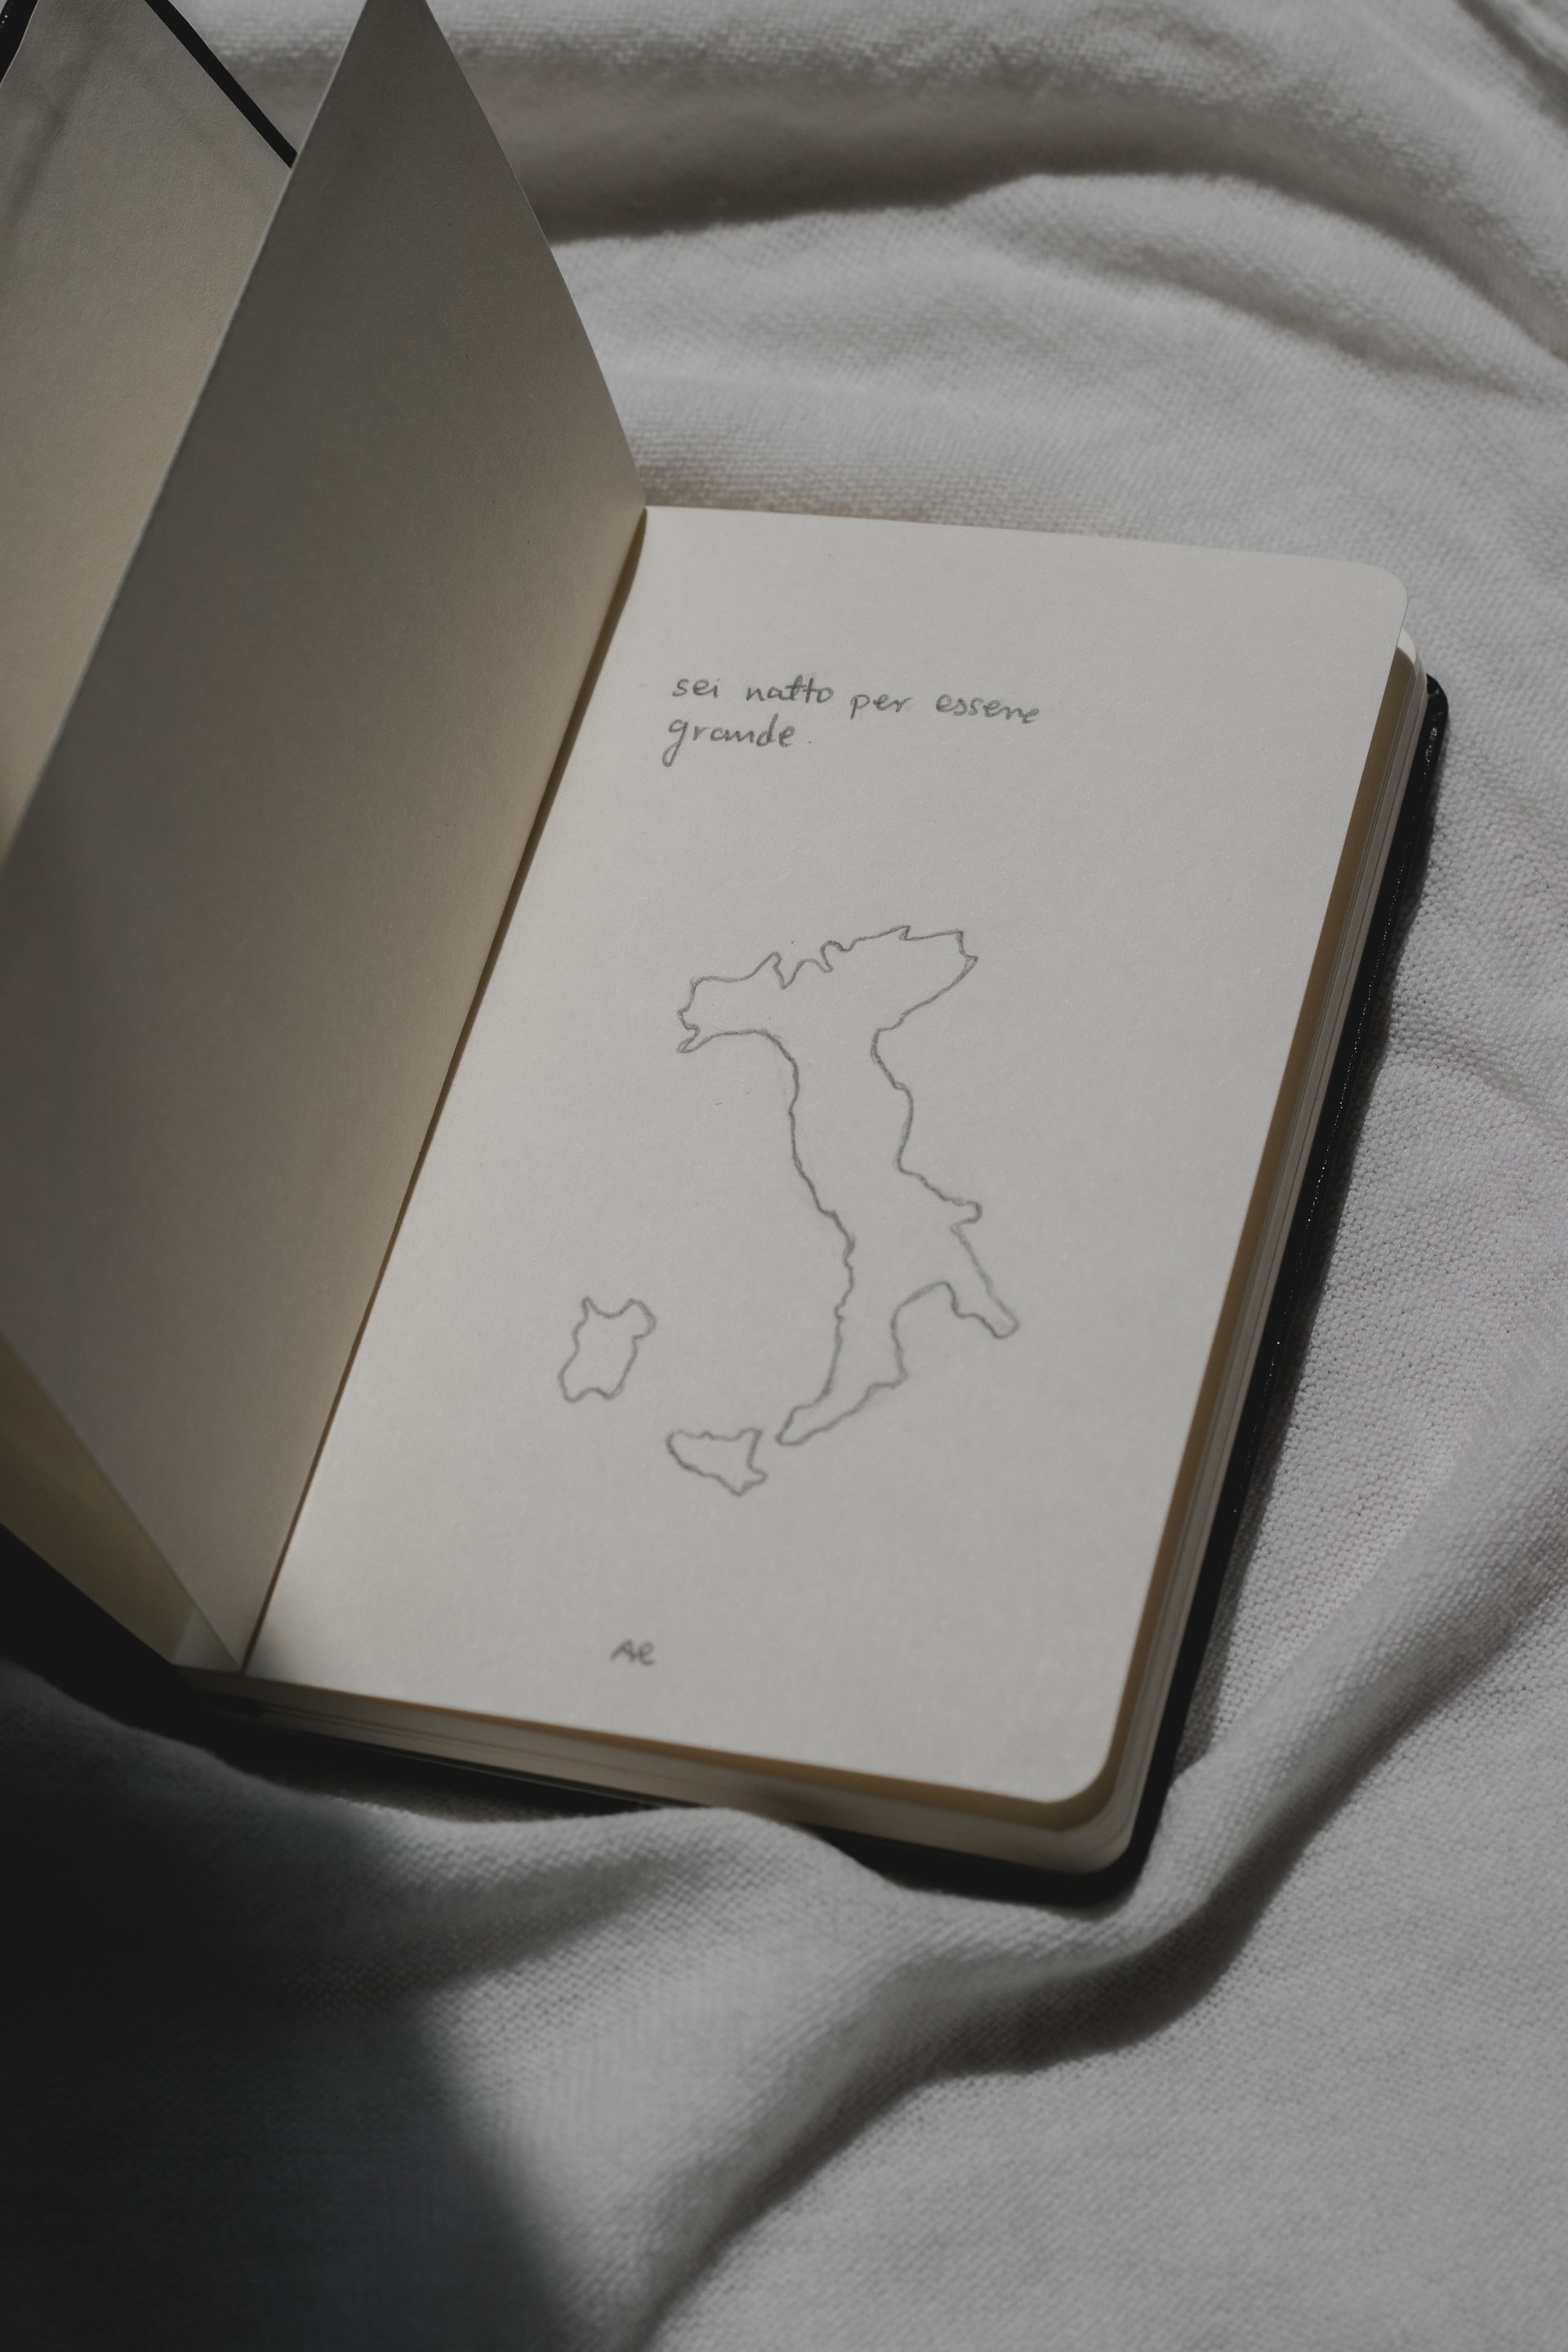 sei natto per essere
grande.
Ae